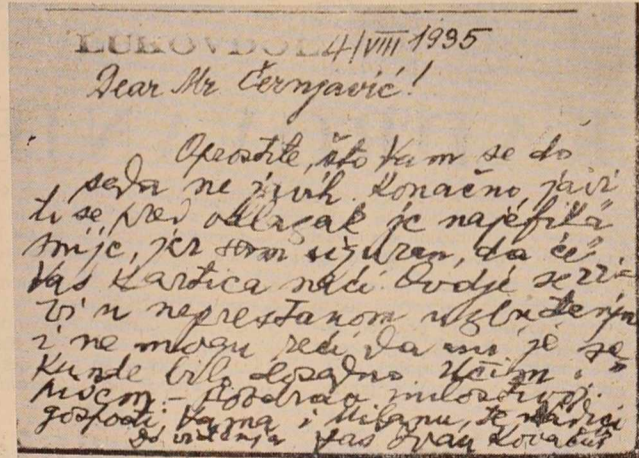 LUKOVDOL 4/VIII 1935
Dear Mr Černjavić!
Oprostite, što Vam se do
sada ne javih. Konačno javi
ti se pred odlazak je najefika
snije, jer sam siguran, da će
Vas kartica naći. Ovdje se ži
vi u neprestanom uzbuđenju
i ne mogu reći da mi je se
kunde bilo dosadno. Učim i
pušem. - Pozdrav milostivoj
gospođi, Vama i Milanu, te
do viđenja Vaš Ivan Kovačić